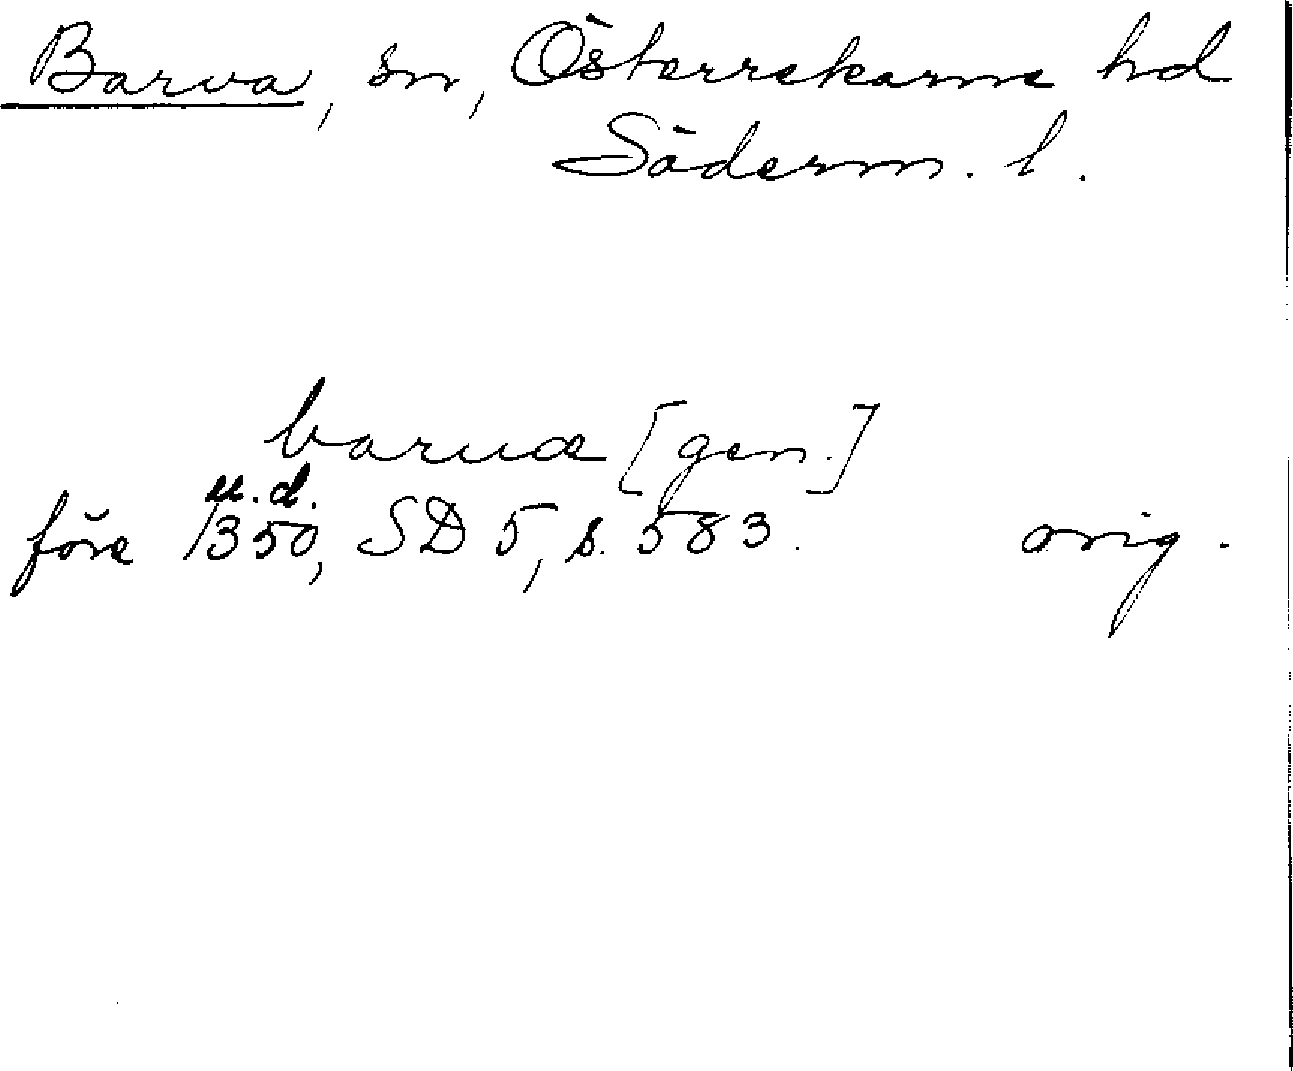 Barva, sn, Österrekarne hd
Söderm. l.
baruæ [gen.]
u.d.
före 1350, SD 5, s. 583. orig.